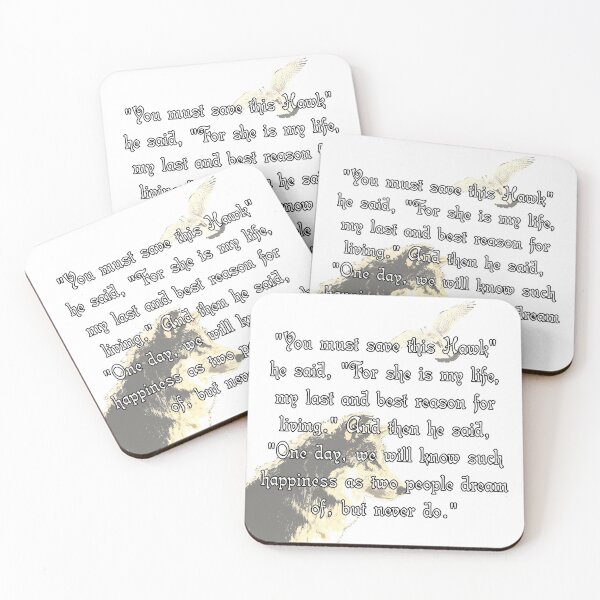 "You must save this Hawk"
he said, "For she is my life,
my last and best reason
he
know
"You must save this Hawk"
he said, "For she is my life,
my last and best reason for
living." And then he said,
"One day, we will know such
dream
"You must save this Hawk"
he said, "For she is my life,
my last and best reason for
living." And then he said,
"One day, we will know
happiness as two
of, but
"You must save this Hawk"
he said, "For she is my life,
my last and best reason for
living." And then he said,
"One day, we will know such
happiness as two people dream
of, but never do."